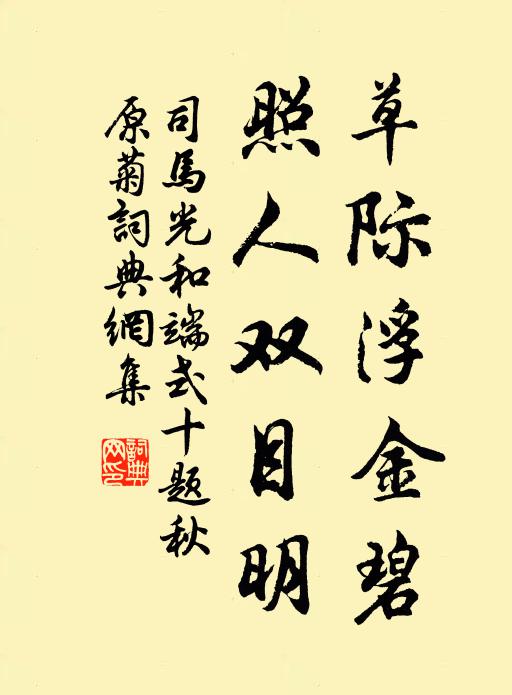 草际浮金碧
照人双目明
司馬光和端式十题秋
原菊詞典網集
詞典
网印